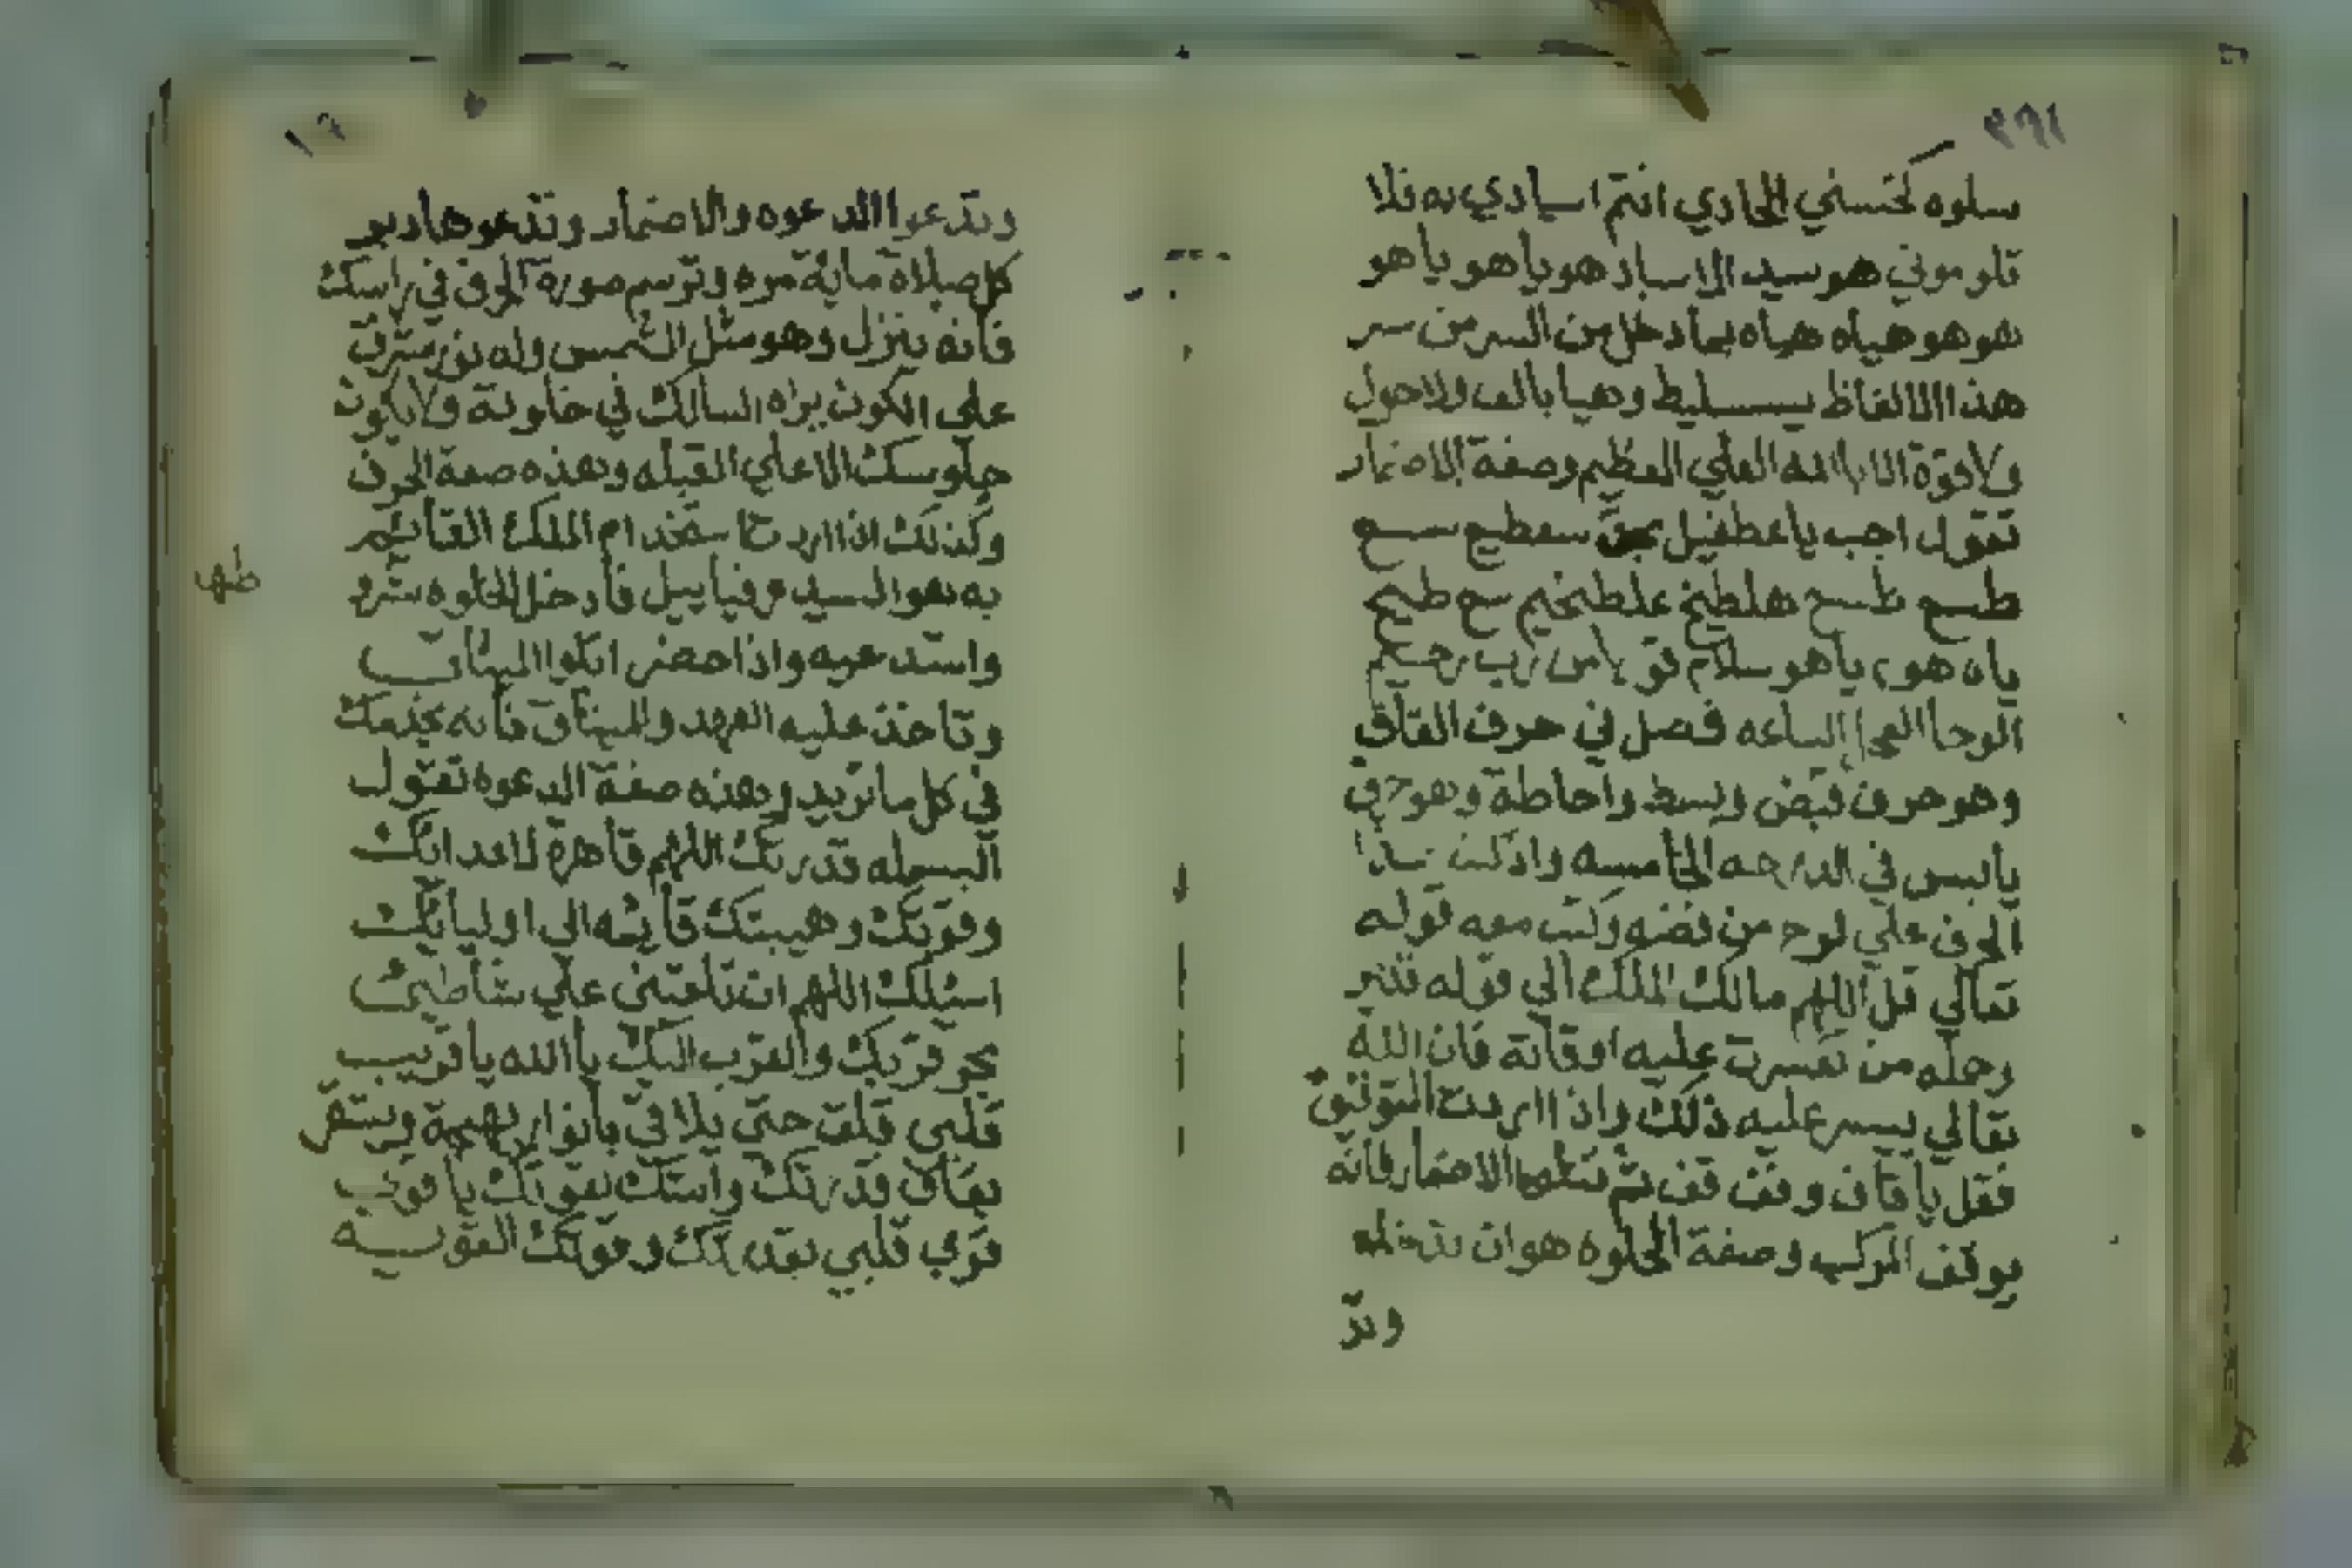 ٢٩١
سلوه لحسني الحادي انتم اسيادي به فلا
تلوموني هو سيد الاسياد هو ياهو ياهو
هوهو هياه هياه بما دخل من السر من سر
هذ االالفاظ بسـليط وهيا بالف ولاحول
ولاقوة الابالله العلي العظيم وصفة الاضمار
تقول اجب ياعطفيل بحق سعطيع سـع
طسع طسع هلطيخ علطيخيم سع طيم
ياه هو ياهو سلام قولا من رب رحيم
الوحا العجل الساعه فصل في حرف القاف
وهو حرف قبض وبسط واحاطة وهو حرف
يابس في الدرجه الخامسه واذكتب هذا
الحرف علي لوح من فضه وكتب معه قوله
تعالي قل اللهم مالك الملك الي قوله قدير
وحمله من تعسرت عليه اوقاته فان الله
تعالي ييسر عليه ذلك واذ ااردت التوفيق
فقل ياقاف وقف قف ثم تتلوا الاضمار فانه
يوقف المركب وصفة الخلوه هوان تدخله
وتد
وتدعوا الدعوه والاضمار وتدعوها دبر
كل صلاة ماية مره وترسم صورة الحرف في راسك
فانه ينزل وهو مثل الشمس وله نور مشرق
علي الكون يراه السالك في خلوته ولايكون
جلوسك الاعلي القبله وهذه صفة الحرف
وكذلك اذااردت استخدام الملك القائم
به هو السيد فادخل الخلوه
واستدعيه واذاحضر
وتاخذ عليه العهد والميثاق فانه يخدمك
في كل ماتريد وهذه صفة الدعوه تقول
البسمله قدرتك اللهم قاهرة لاعدائك
وقوتك وهيبتك الي اوليائك
اسئلك اللهم ان تلقني علي شاطئ
بحر قربك والقرب اليك ياالله ياقريب
قلبي قلق حتي يلاقي بانوار
بقاف قدرتك واسئلك بقوتك ياقوي
قوي قلبي بقدرتك وقوتك القويـه